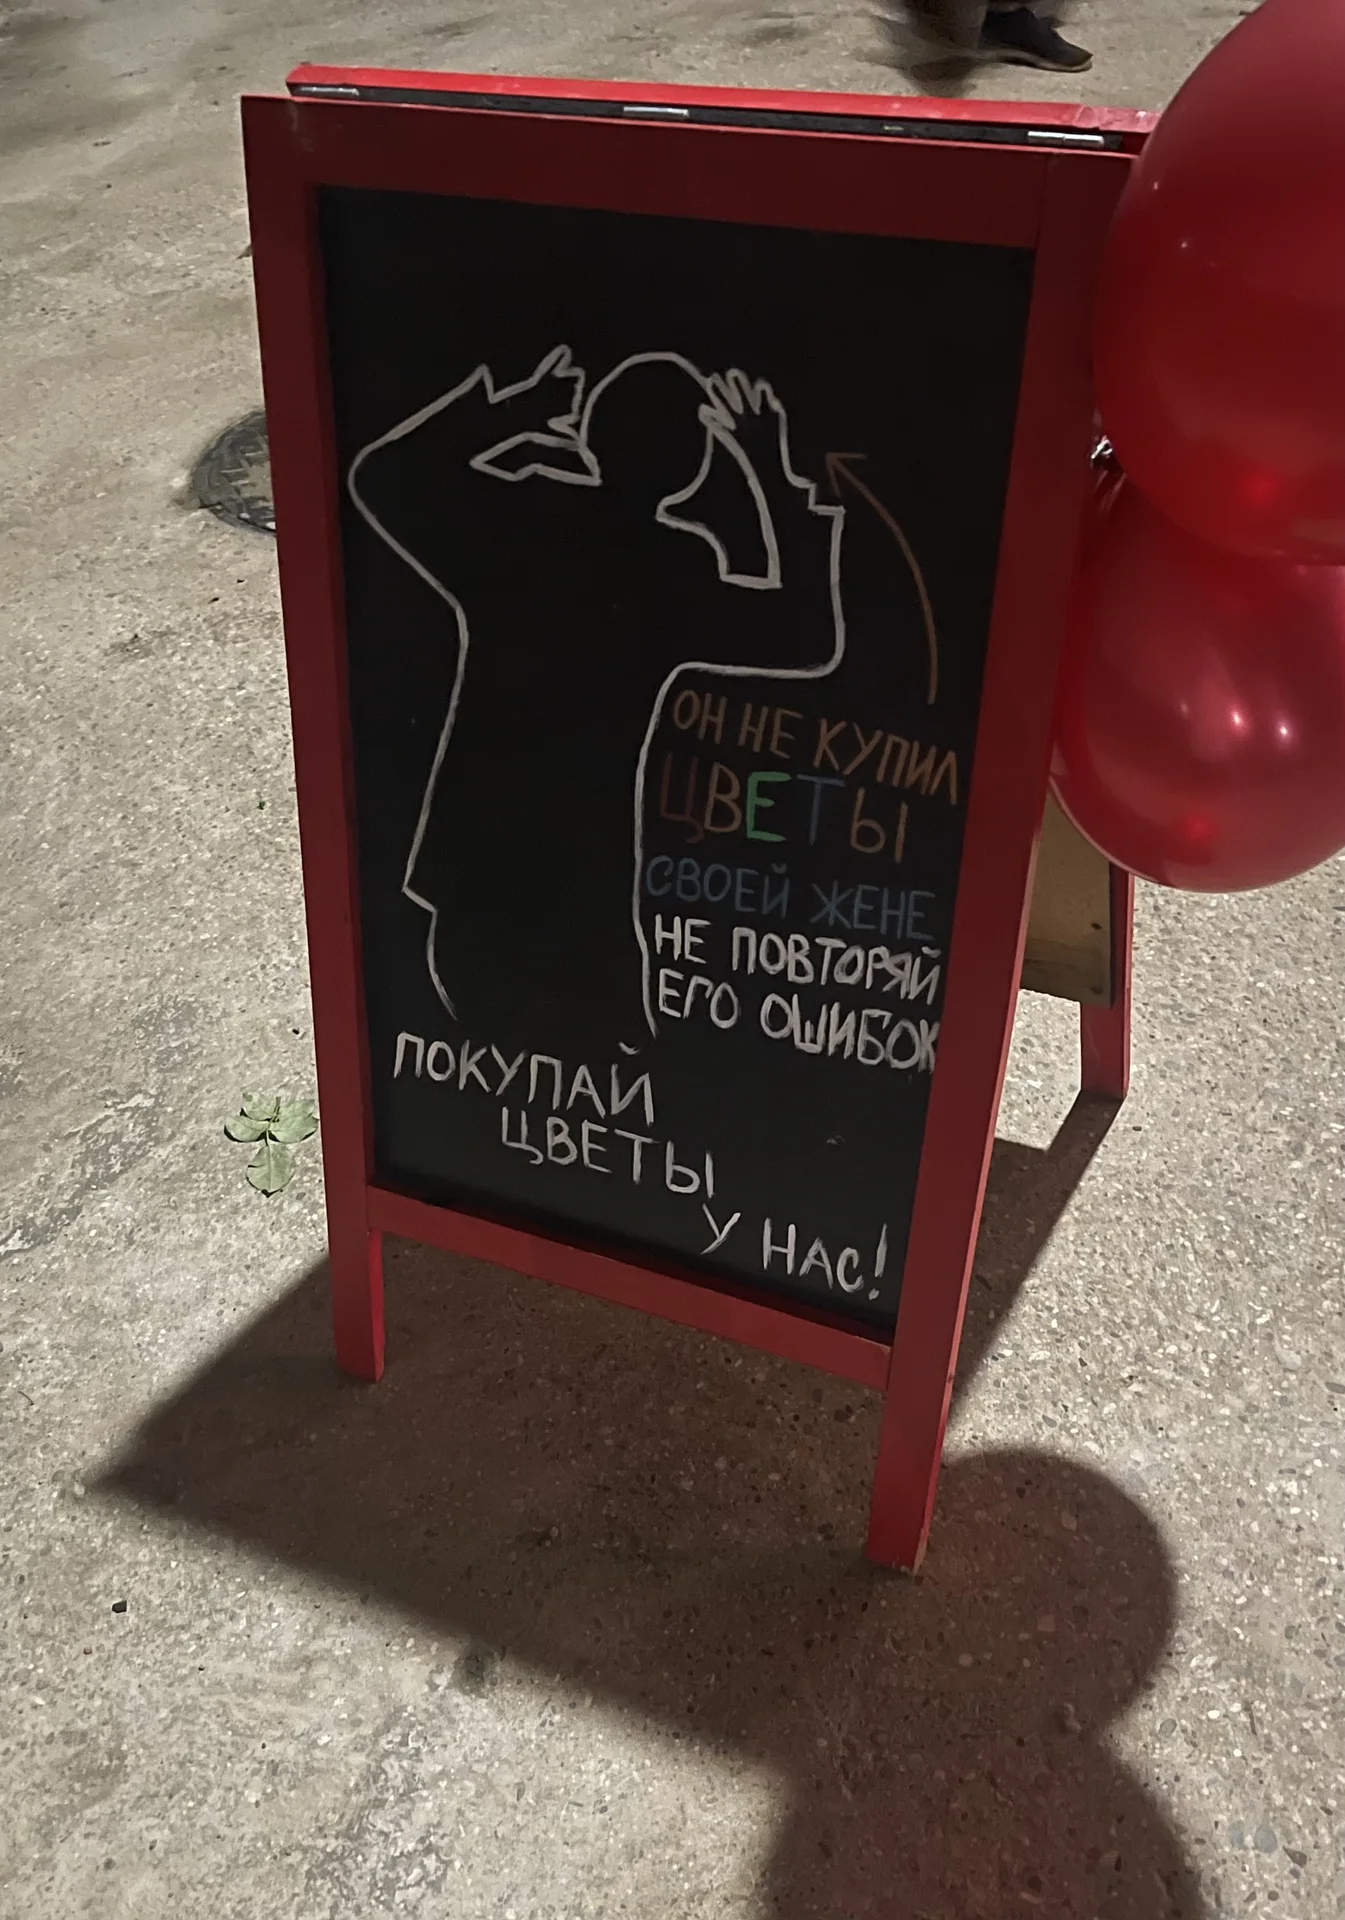 ОН НЕ КУПИЛ
ЦВЕТЫ
СВОЕЙ ЖЕНЕ
НЕ ПОВТОРЯЙ
ЕГО ОШИБОК
ПОКУПАЙ
ЦВЕТЫ
У НАС!